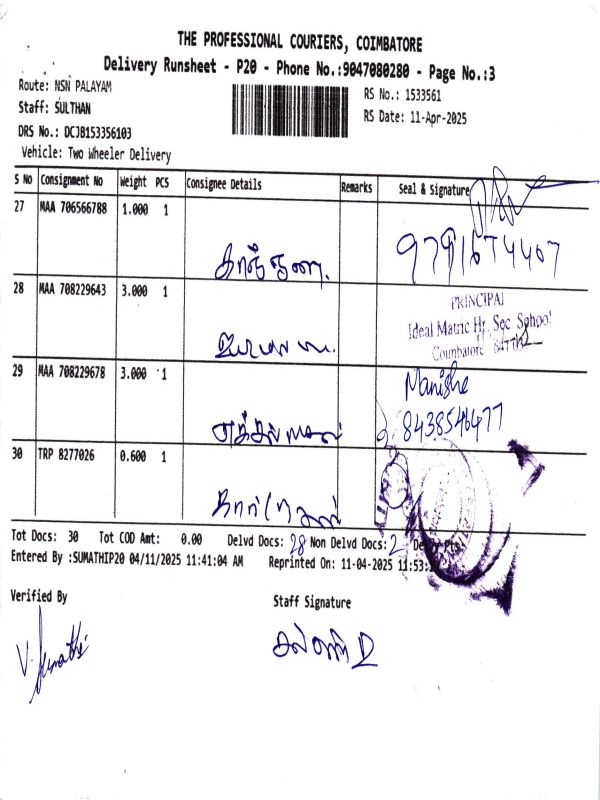 THE PROFESSIONAL COURIERS, COIMBATORE
Delivery Runsheet - P20 - Phone No.:9047080280 - Page No.:3
Route: NSN PALAYAM
RS No.: 1533561
Staff: SULTHAN
RS Date: 11-Apr-2025
DRS No.: DCJB153356103
Vehicle: Two Wheeler Delivery
S No Consignment No Weight PCS Consignee Details Remarks Seal & Signature
27 MAA 706566788 1.000 1
28 MAA 708229643 3.000 1
PRINCIPAL
Ideal Matric Hr. Sec. School
Coimbatore
29 MAA 708229678 3.000 1
Manisha
8438546477
30 TRP 8277026 0.600 1
Tot Docs: 30 Tot COD Amt: 0.00 Delvd Docs: 28 Non Delvd Docs: 2
Entered By :SUMATHIP20 04/11/2025 11:41:04 AM Reprinted On: 11-04-2025 11:53:
Verified By
Staff Signature